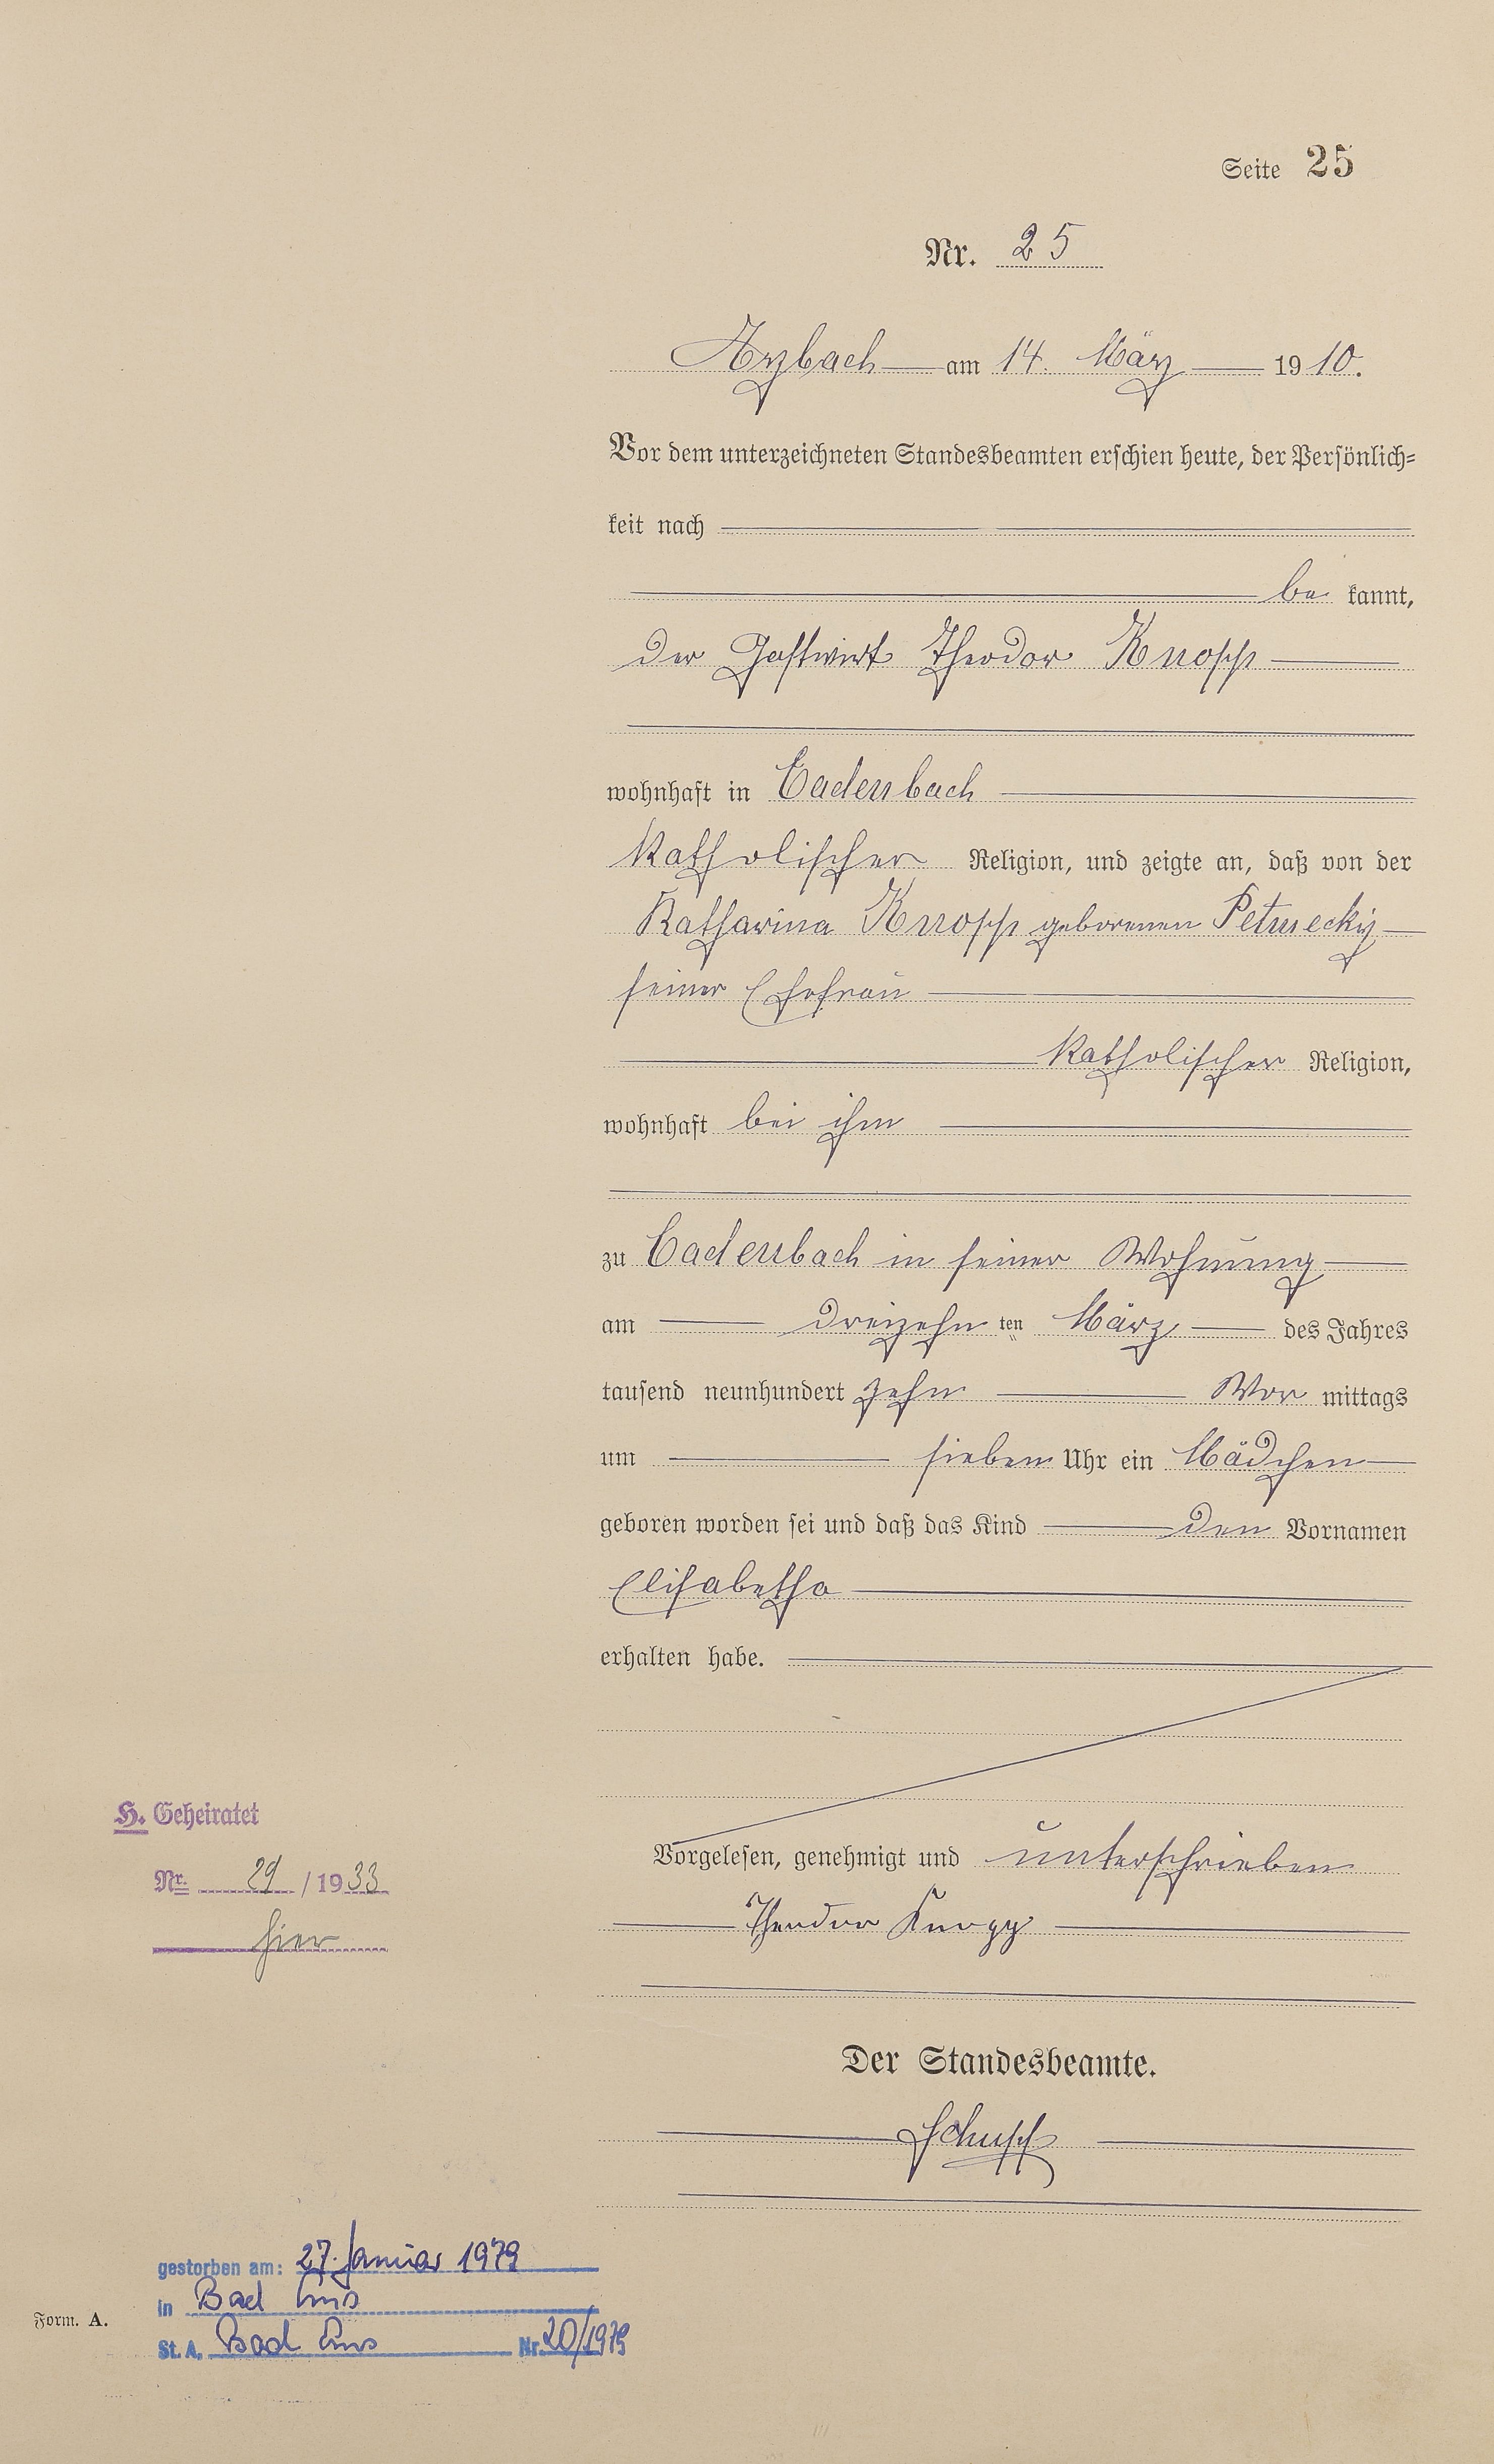 Seite 25
Nr. 25
Arzbach am 14. März 1910.
Vor dem unterzeichneten Standesbeamten erschien heute, der Persönlich-
keit nach
be kannt,
der Gastwirt Theodor Knopp
wohnhaft in Cadenbach
katholischer Religion, und zeigte an, daß von der
Katharina Knopp geborenen
seiner Ehefrau
katholischer Religion,
wohnhaft bei ihm
zu Cadenbach in seiner Wohnung
am dreizehn ten März des Jahres
tausend neunhundert zehn Vor mittags
um sieben Uhr ein Mädchen
geboren worden sei und daß das Kind den Vornamen
Elisabetha
erhalten habe.
Vorgelesen, genehmigt und unterschrieben
Theodor Knopp
Der Standesbeamte.
Schupp
H. Geheiratet
Nr. 29 / 1933
hier
gestorben am: 27. Januar 1979
in Bad Ems
St. A. Bad Ems Nr. 20/1979
Form. A.